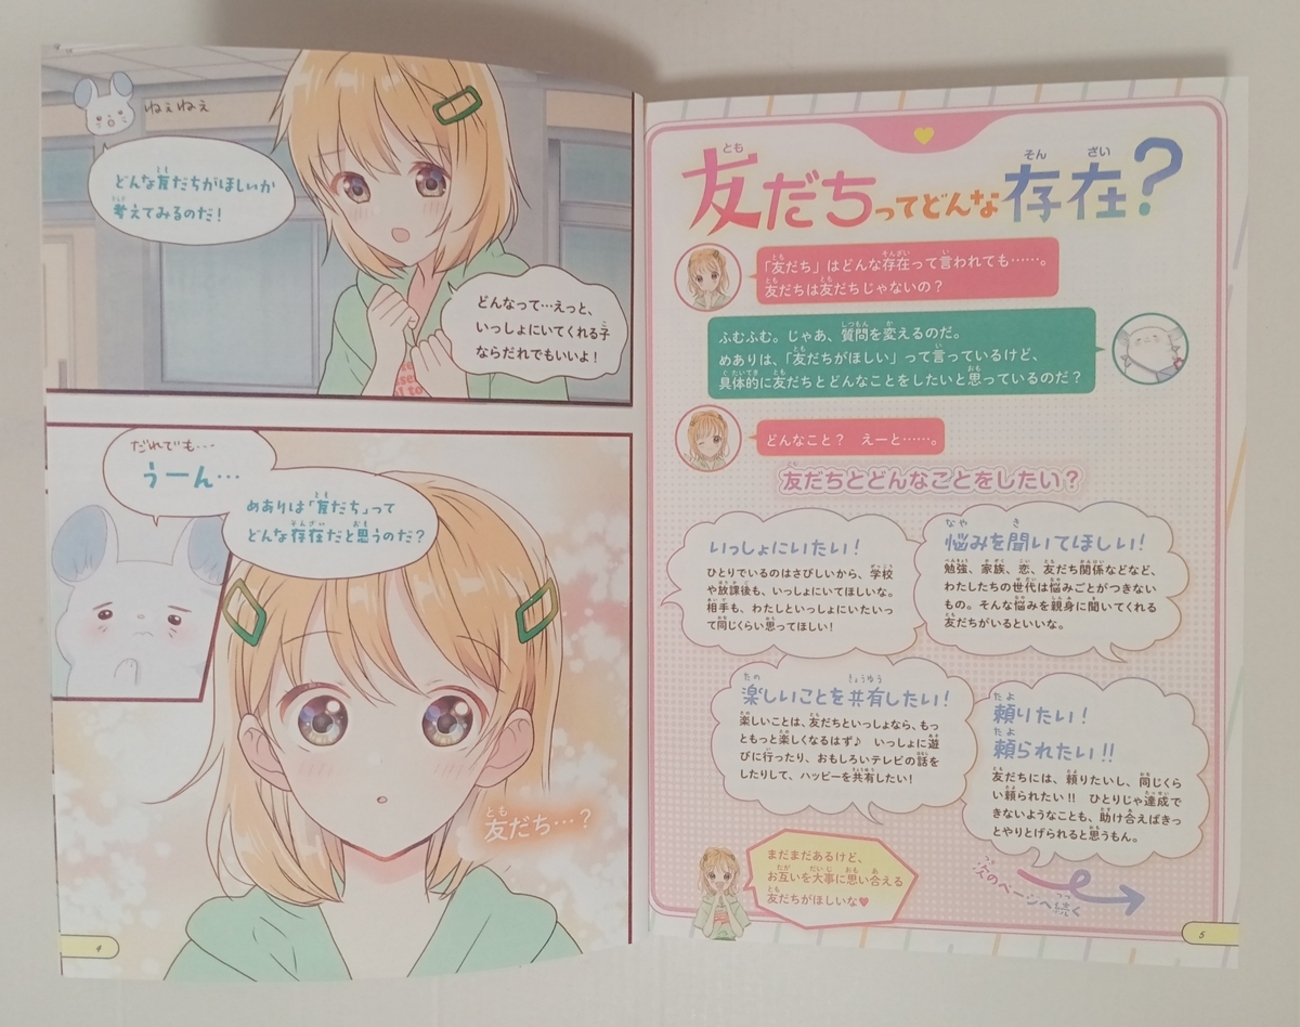 ねぇねぇ
どんな友だちがほしいか
考えてみるのだ!
どんなって…えっと、
いっしょにいてくれる子
ならだれでもいいよ!
だれでも…
うーん…
めありは「友だち」って
どんな存在だと思うのだ?
友だち…?
4
友だちってどんな存在?
「友だち」はどんな存在って言われても……。
友だちは友だちじゃないの?
ふむふむ。じゃあ、質問を変えるのだ。
めありは、「友だちがほしい」って言っているけど、
具体的に友だちとどんなことをしたいと思っているのだ?
どんなこと? えーと……。
友だちとどんなことをしたい?
いっしょにいたい!
ひとりでいるのはさびしいから、学校
や放課後も、いっしょにいてほしいな。
相手も、わたしといっしょにいたいっ
て同じくらい思ってほしい!
悩みを聞いてほしい!
勉強、家族、恋、友だち関係などなど、
わたしたちの世代は悩みごとがつきない
もの。そんな悩みを親身に聞いてくれる
友だちがいるといいな。
楽しいことを共有したい!
楽しいことは、友だちといっしょなら、もっ
ともっと楽しくなるはず♪ いっしょに遊
びに行ったり、おもしろいテレビの話を
したりして、ハッピーを共有したい!
頼りたい!
頼られたい!!
友だちには、頼りたいし、同じくら
い頼られたい!! ひとりじゃ達成で
きないようなことも、助け合えばきっ
とやりとげられると思うもん。
まだまだあるけど、
お互いを大事に思い合える
友だちがほしいな♥
次のページへ続く
5